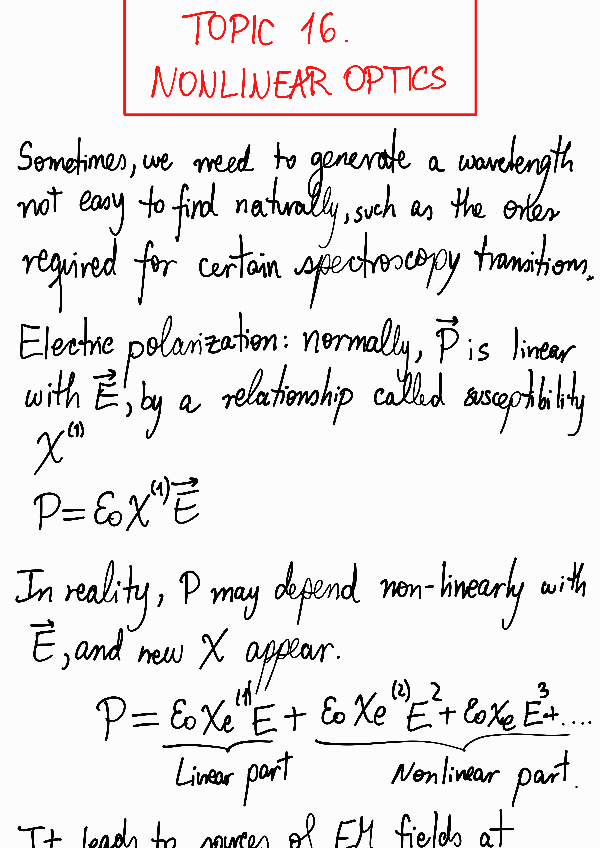 TOPIC 16.
NONLINEAR OPTICS
Sometimes, we need to generate a wavelength
not easy to find naturally, such as the ones
required for certain spectroscopy transitions.
Electric polarization: normally, P⃗ is linear
with E⃗, by a relationship called susceptibility
χ⁽¹⁾
P = ε₀χ⁽¹⁾E⃗
In reality, P may depend non-linearly with
E⃗, and new χ appear.
P = ε₀χe⁽¹⁾E + ε₀χe⁽²⁾E² + ε₀χeE³+....
Linear part Nonlinear part.
It leads to sources of EM fields at